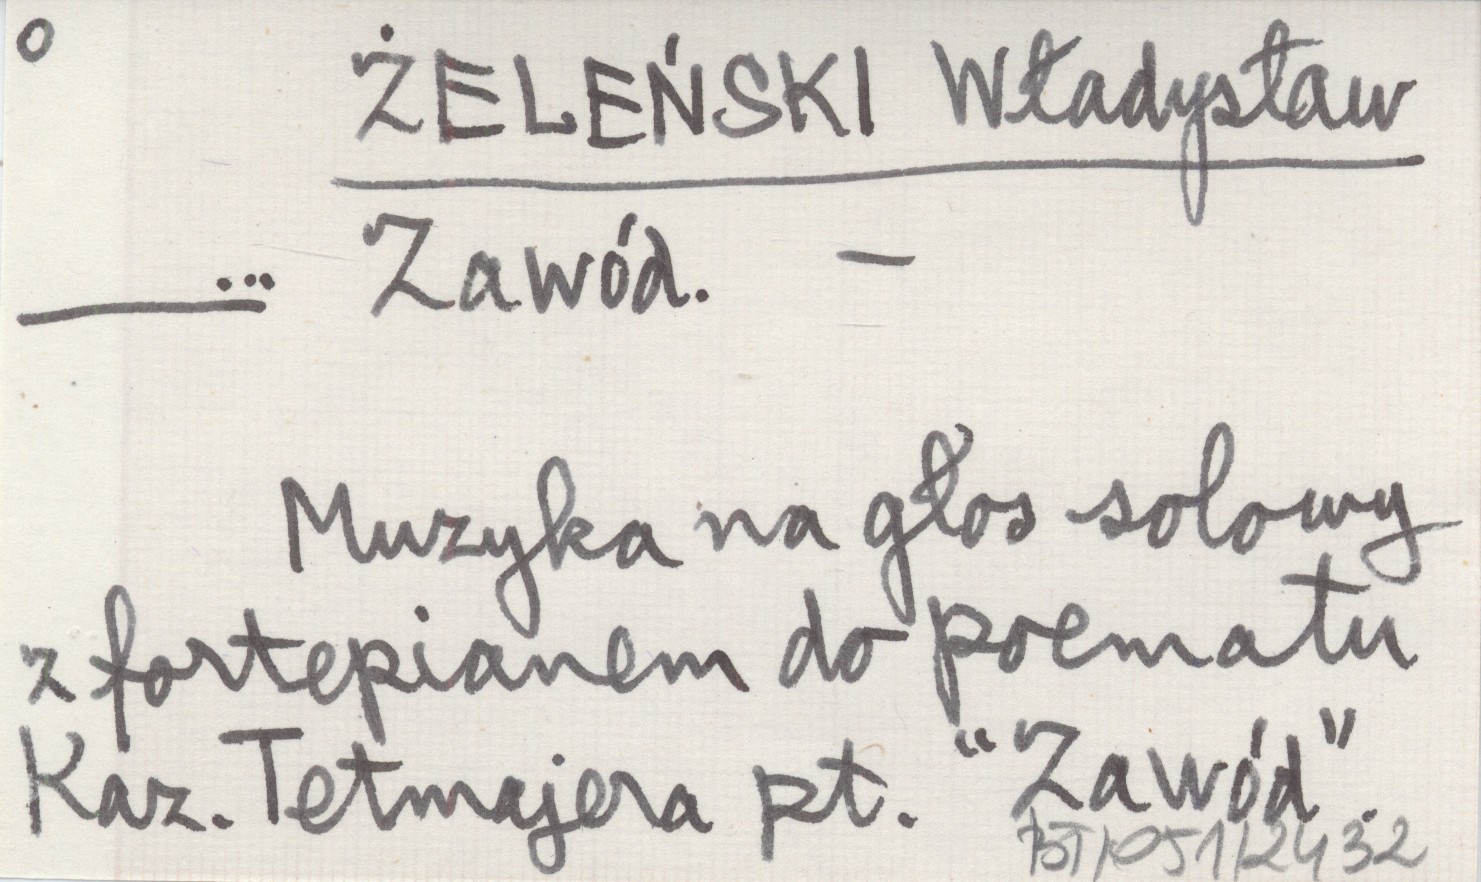 o
ŻELEŃSKI Władysław
... Zawód. —
Muzyka na głos solowy
z fortepianem do poematu
Kaz. Tetmajera pt. "Zawód".
BT/051/2432